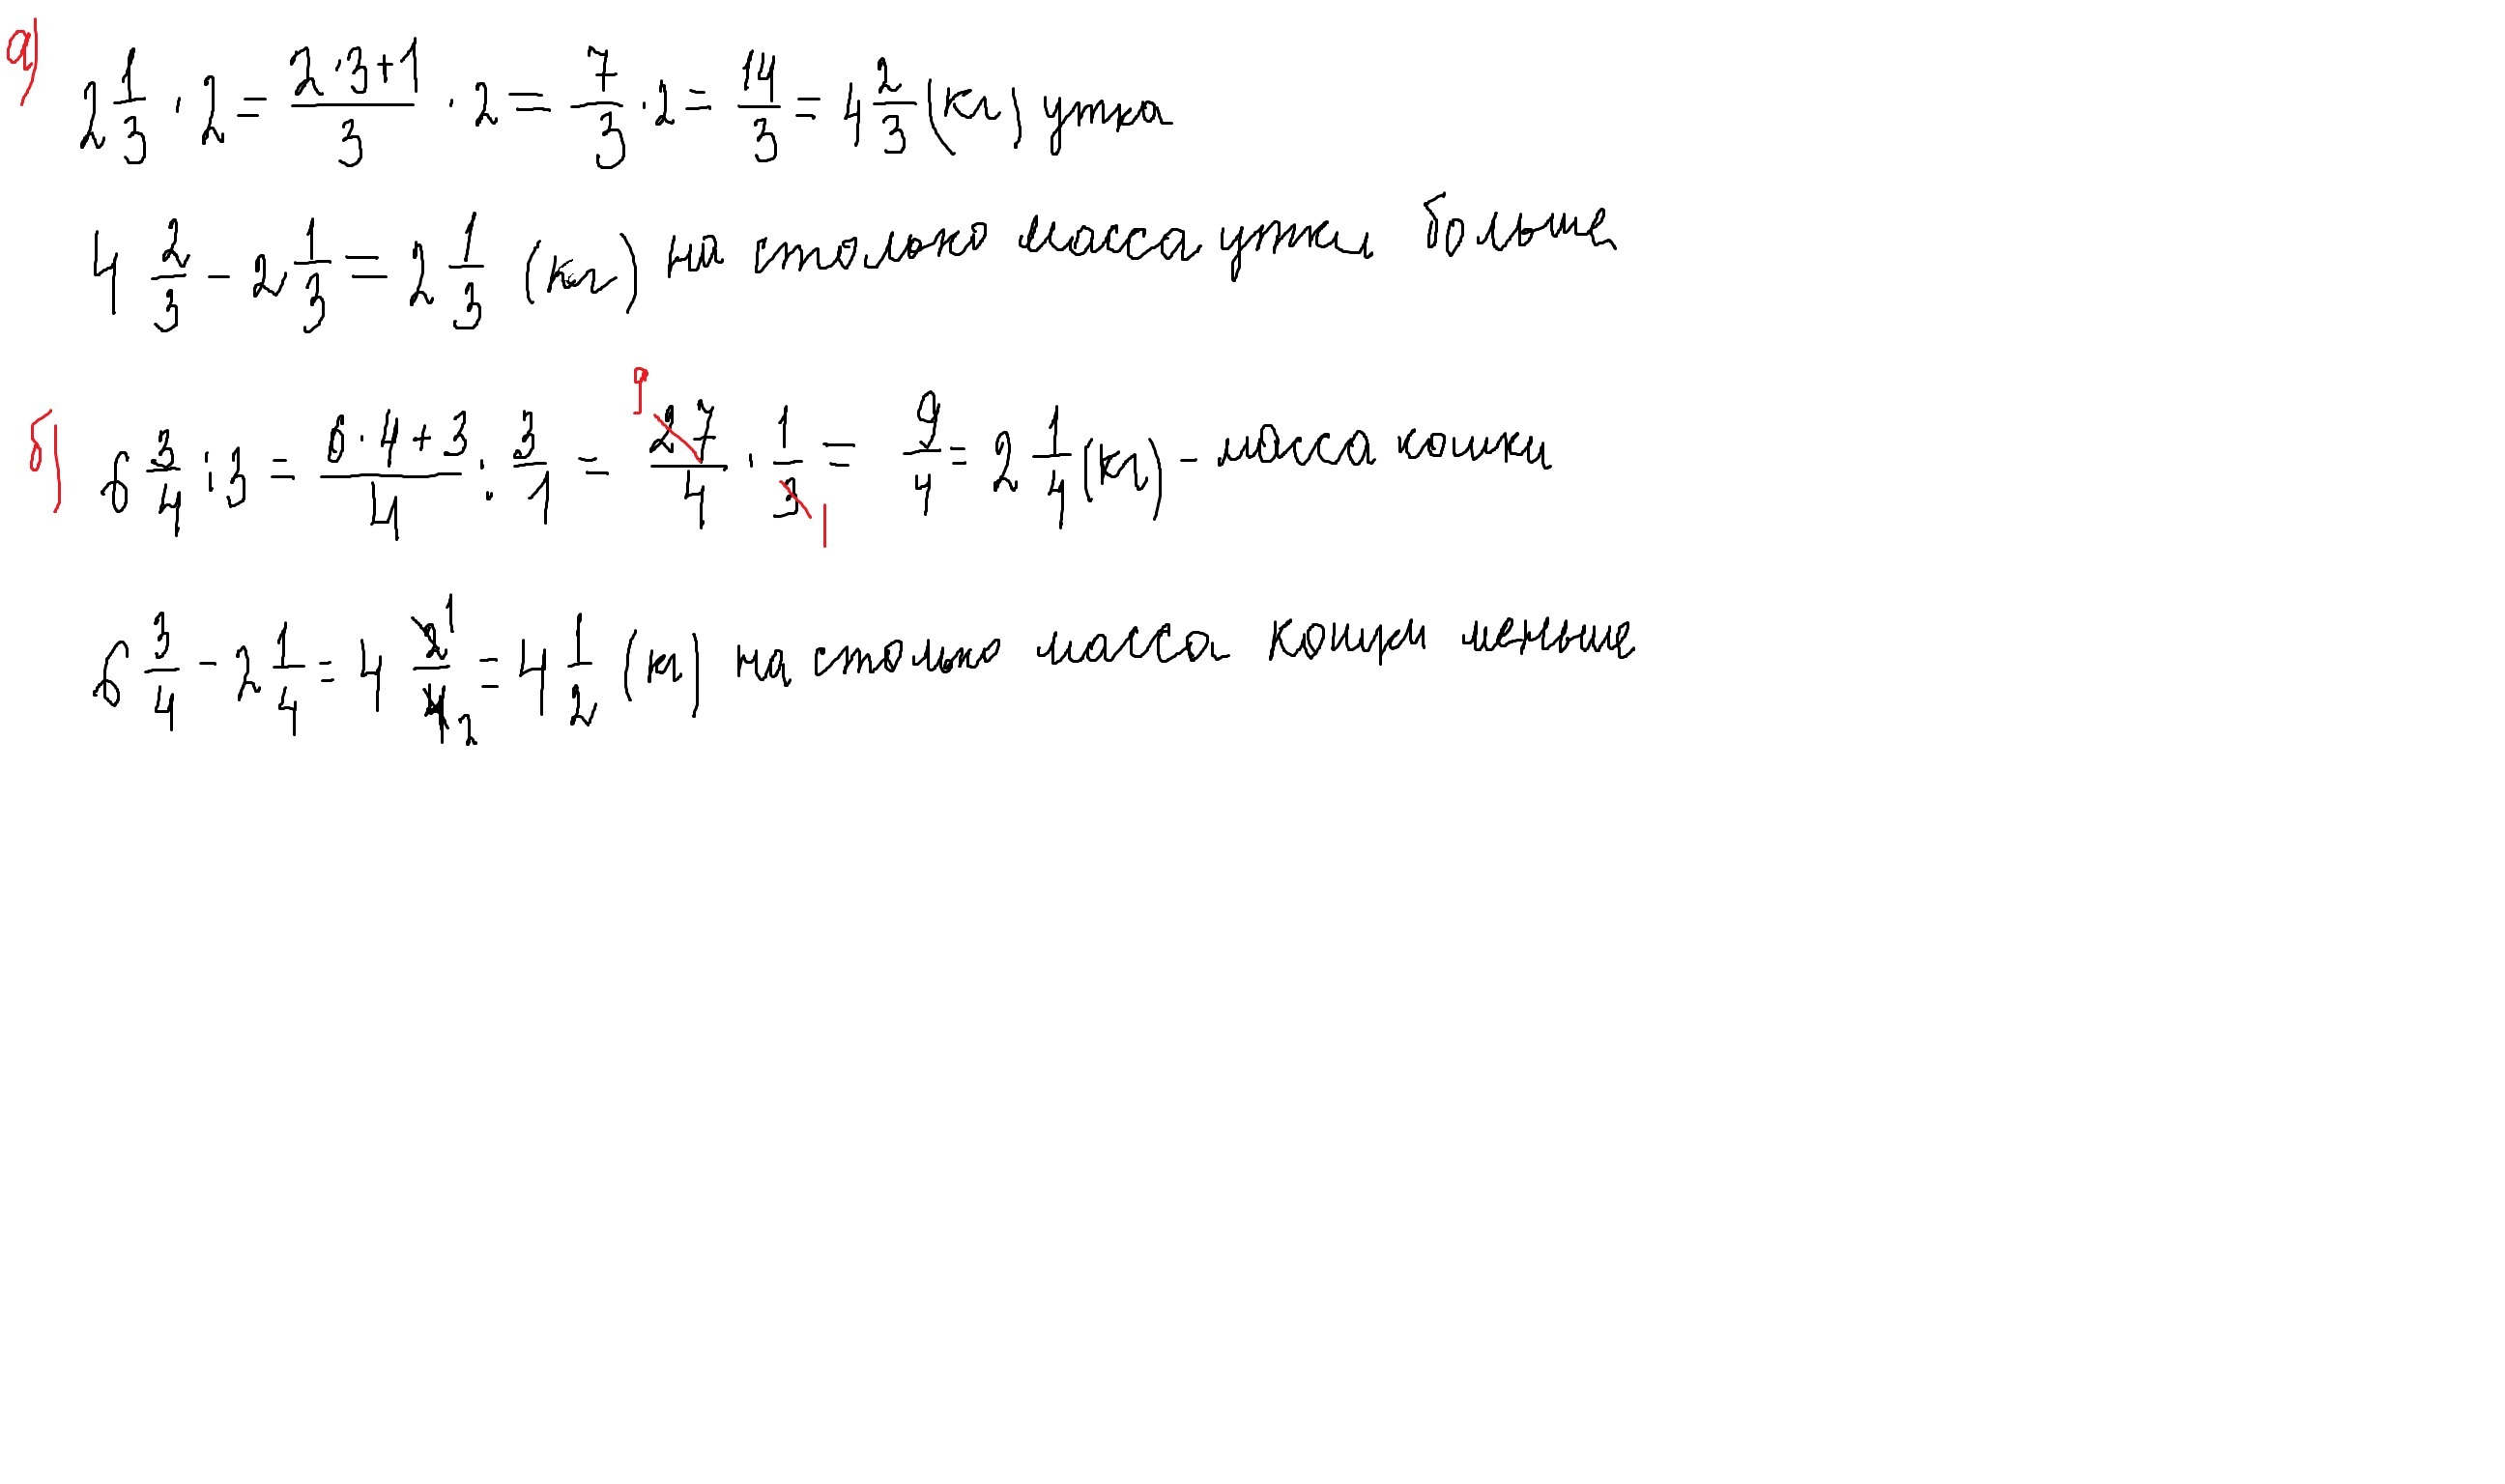 а) 2 1/3 · 2 = (2·3+1)/3 · 2 = 7/3 · 2 = 14/3 = 4 2/3 (кг) утка
4 2/3 - 2 1/3 = 2 1/3 (кг) на столько масса утки больше
б) 6 3/4 : 3 = (6·4+3)/4 : 3/1 = 9 27/4 · 1/3 1 = 9/4 = 2 1/4 (кг) - масса кошки
6 3/4 - 2 1/4 = 4 2/4 1 2 = 4 1/2 (кг) на столько масса кошки меньше